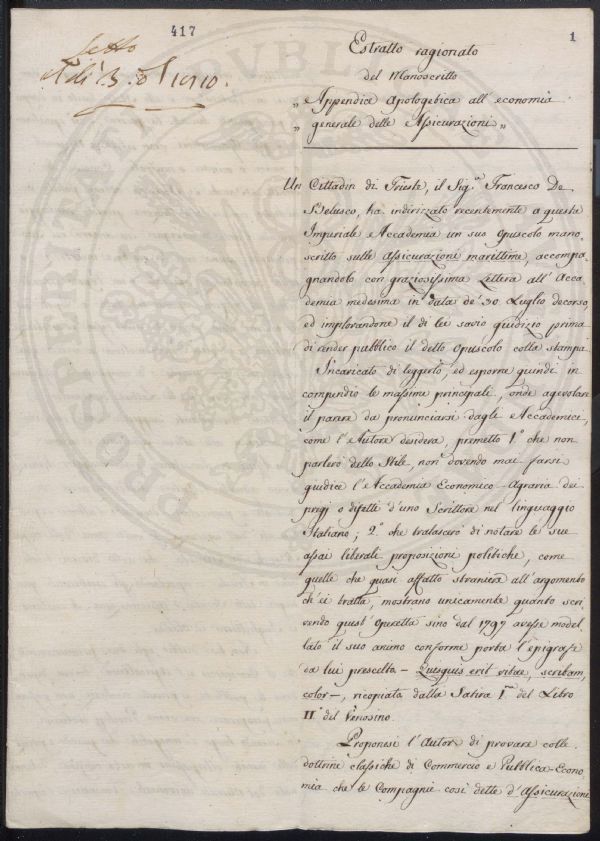 417
1
Letto
il dì 13. 1810.
Estratto ragionato
del Manoscritto
„ Appendice Apologetica all' economia
„ generale delle Assicurazioni „
Un Cittadin di Trieste, il Sig.r Francesco De
Belusco, ha indirizzato recentemente a questa
Imperiale Accademia un suo opuscolo mano-
scritto sulle assicurazioni marittime, accompa-
gnandolo con graziosissima Lettera all' Acca-
demia medesima in data de' 30. Luglio decorso,
ed implorandone il di lei savio giudizio prima
di render pubblico il detto opuscolo colla stampa.
Incaricato di leggerlo, ed esporne quindi in
compendio le massime principali, onde agevolare
il parere da pronunciarsi dagli Accademici,
come l'Autore desidera, premetto 1.o che non
parlerò dello Stile, non dovendo mai farsi
giudice l'Accademia Economico-Agraria dei
pregj o difetti d'uno Scrittore nel linguaggio
Italiano; 2.o che tralascerò di notare le sue
assai liberali proposizioni politiche, come
quelle che quasi affatto straniere all'argomento
ch'ei tratta, mostrano unicamente quanto scri-
vendo quest'Operetta sino dal 1797 avesse model-
lato il suo animo conforme porta l'epigrafe
da lui prescelta – Quisquis erit vitae, scribam,
color –, ricopiata dalla Satira I.ma del Libro
II.o del Venosino.
Proponesi l'Autore di provare colle
dottrine classiche di Commercio e Pubblica-Econo-
mia che le Compagnie così dette d'assicurazione
PROSPERITATI PUBLI